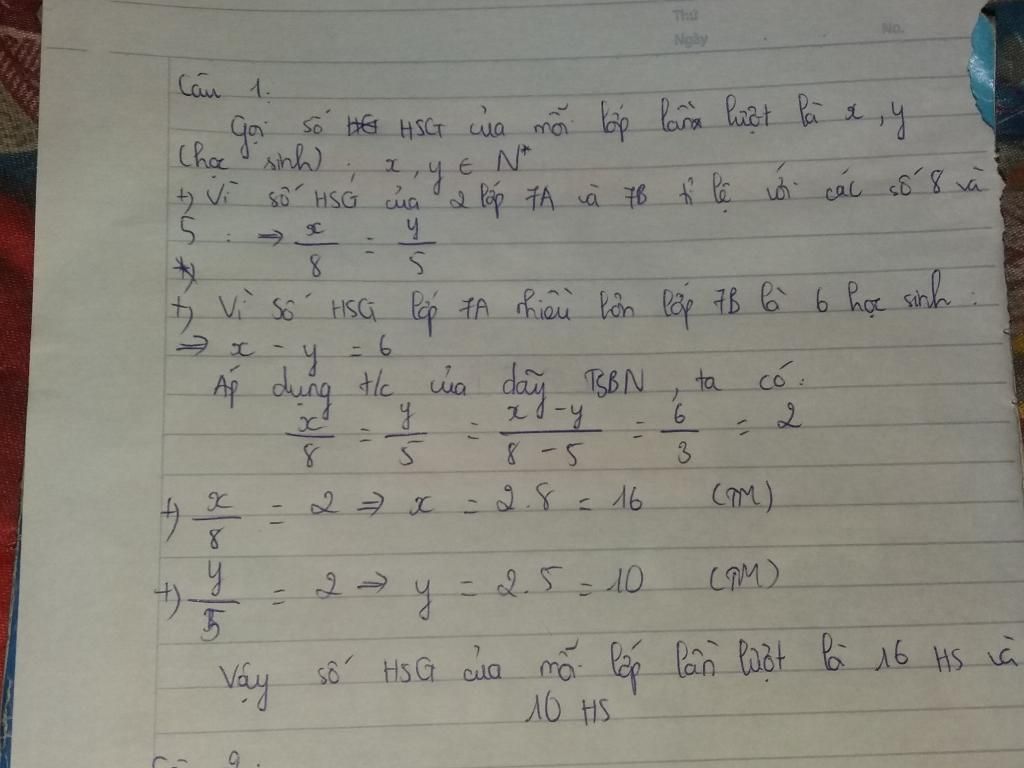 Thứ
Ngày
No.
Câu 1:
Gọi số HSG của mỗi lớp lần lượt là x, y
(học sinh); x, y ∈ N*
+) Vì số HSG của 2 lớp 7A và 7B tỉ lệ với các số 8 và
5 : ⇒ x/8 = y/5
*)
+) Vì số HSG lớp 7A nhiều hơn lớp 7B là 6 học sinh :
⇒ x - y = 6
Áp dụng t/c của dãy TSBN, ta có:
x/8 = y/5 = x - y/8 - 5 = 6/3 = 2
+) x/8 = 2 ⇒ x = 2.8 = 16 (TM)
+) y/5 = 2 ⇒ y = 2.5 = 10 (TM)
Vậy số HSG của mỗi lớp lần lượt là 16 HS và
10 HS